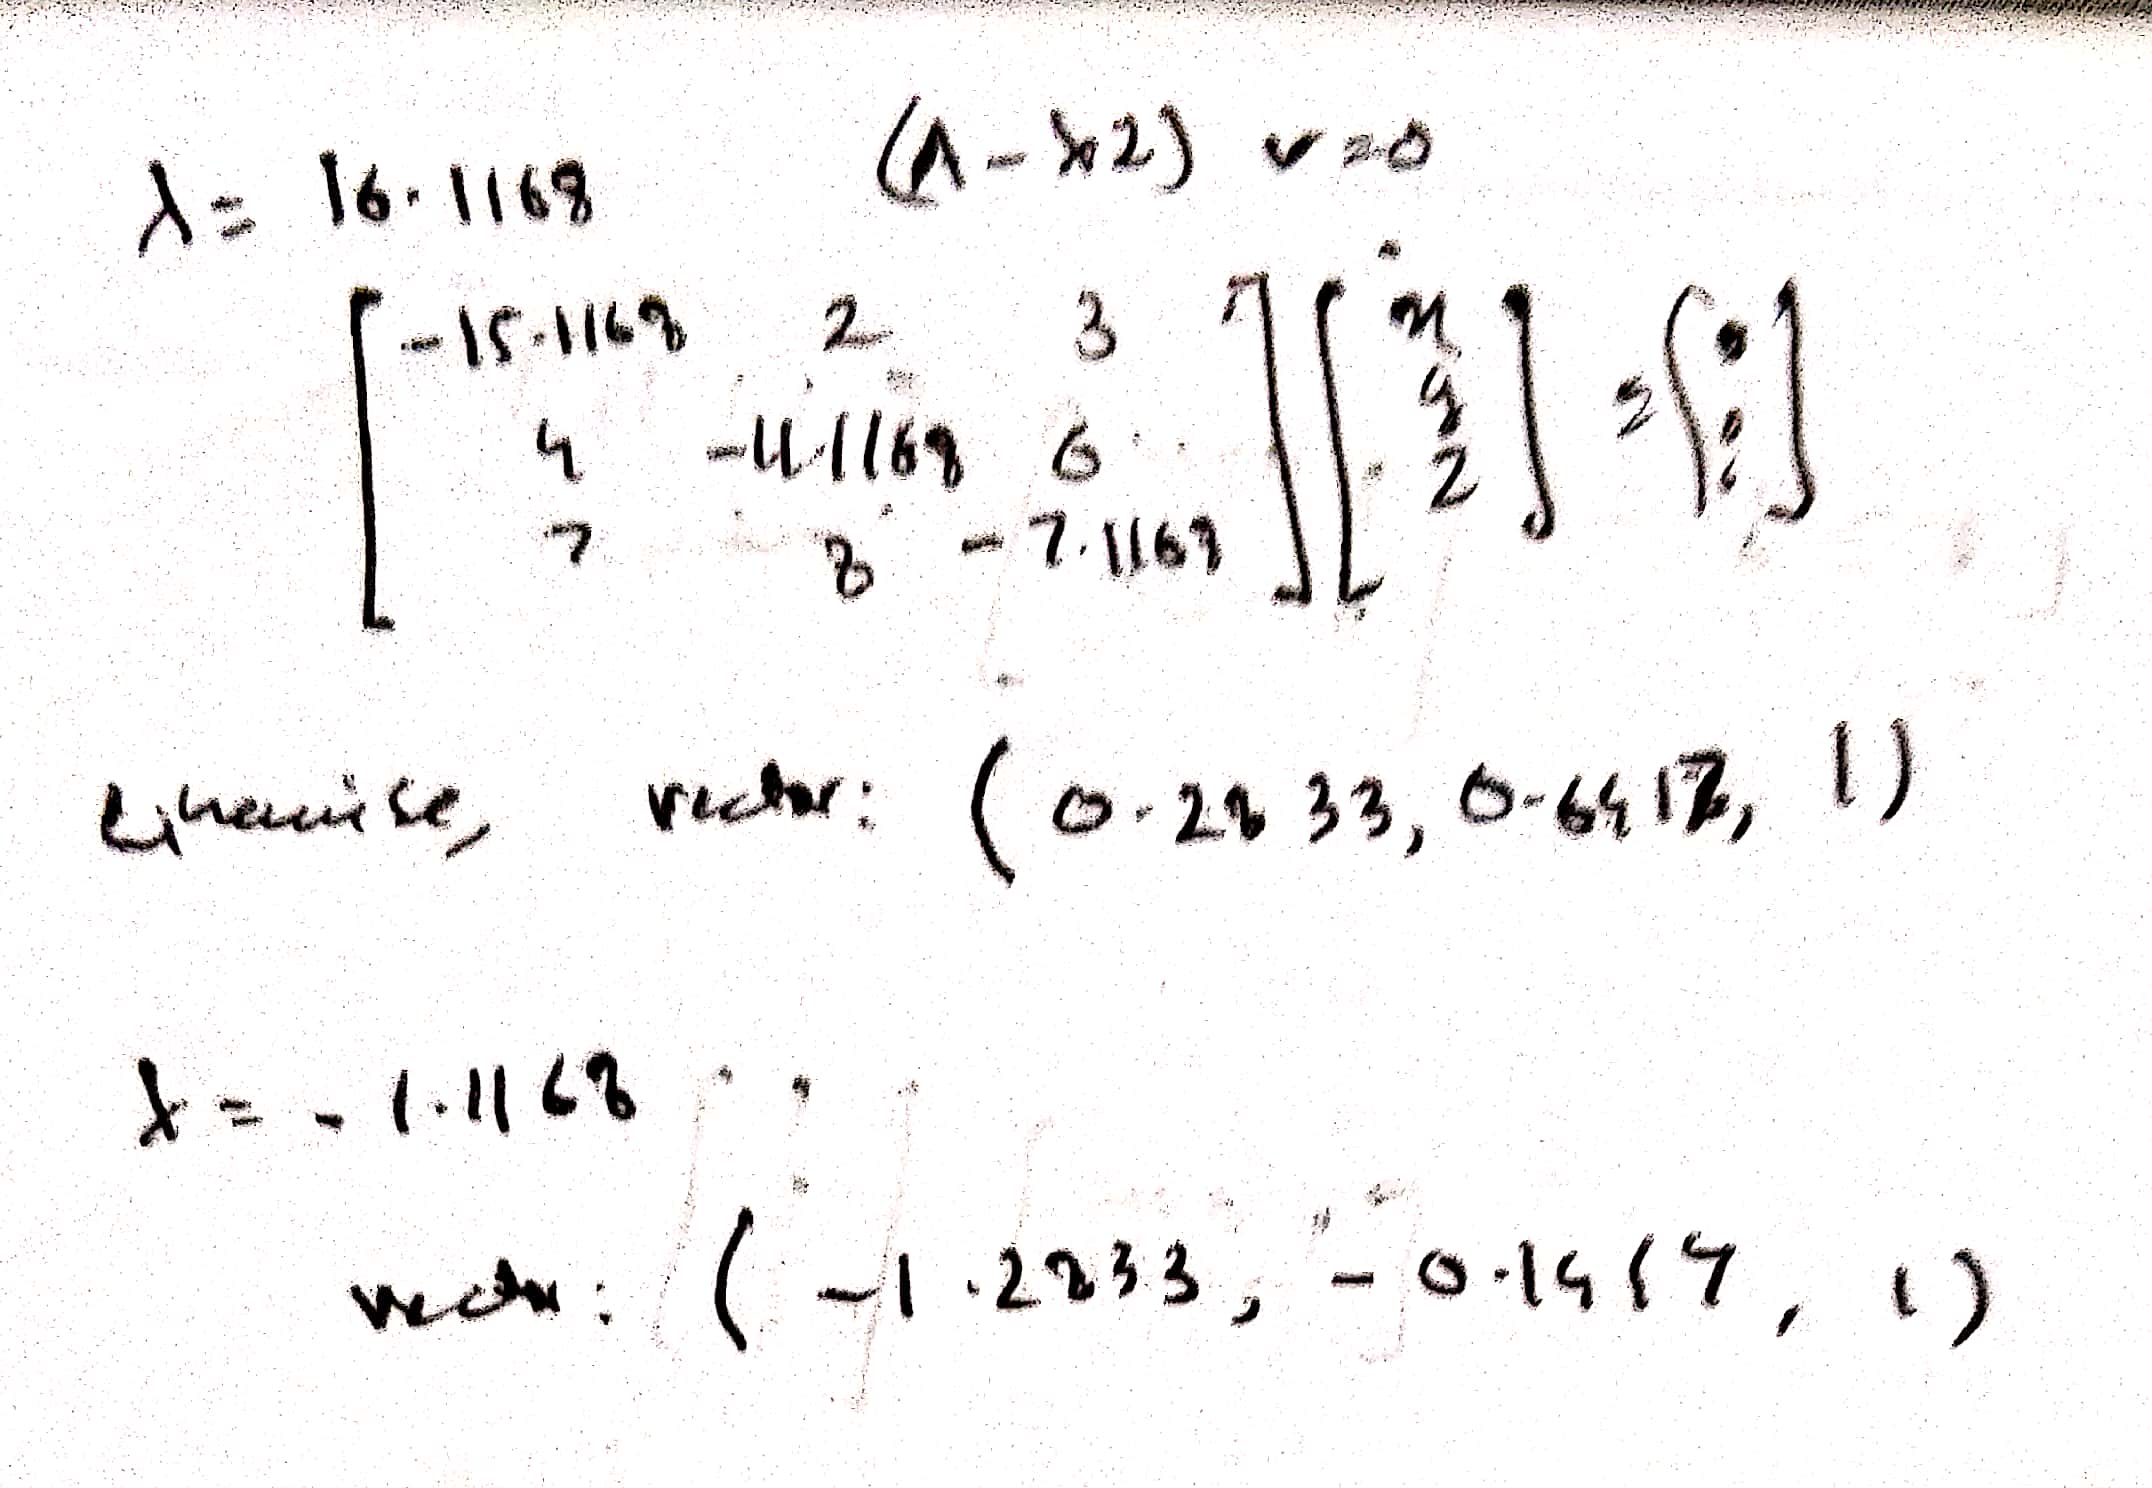 λ = 16.1168 (A - λ2) v = 0
[ -15.1168 2 3 ] [ x ] = [ 0 ]
[ 4 -11.1168 6 ] [ y ] [ 0 ]
[ 7 8 -7.1168 ] [ z ] [ 0 ]
Likewise, vector: ( 0.2833, 0.6417, 1 )
λ = - 1.1168
vector: ( -1.2833, - 0.1417, 1 )